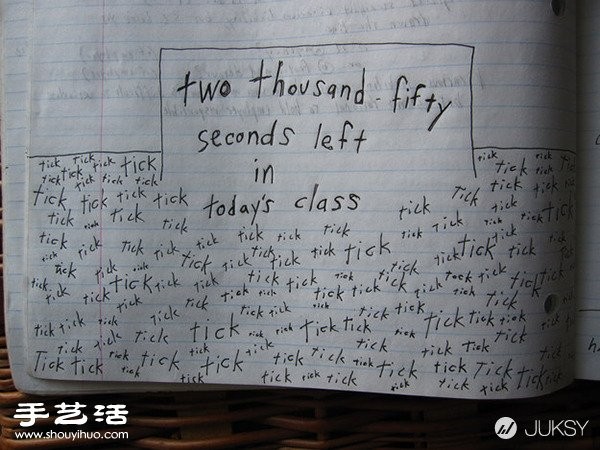 two thousand fifty
seconds left
in
today's class
tick tick tick tick tick tick
tick tick tick tick tick tick tick tick
tick tick tick tick tick tick tick
tick tick tick tick tick tick tick tick
tick tick tick tick tick tick tick tick tick
tick tick tick tick tick tick tick tick tick tick
tick tick tick tick tick tick tick tick tock tick tick
tick tick tick tick tick tick tick tick tick tick
tick tick tick tick tick tick tick tick tick
tick tick tick tick tick tick tick tick tick tick tick tick
tick tick tick tick tick tick tick tick tick tick
Tick tick tick tick tick tick tick tick tick tick tick
tick tick tick tick tick tick tick tick tick
手艺活
www.shouyihuo.com
JUKSY